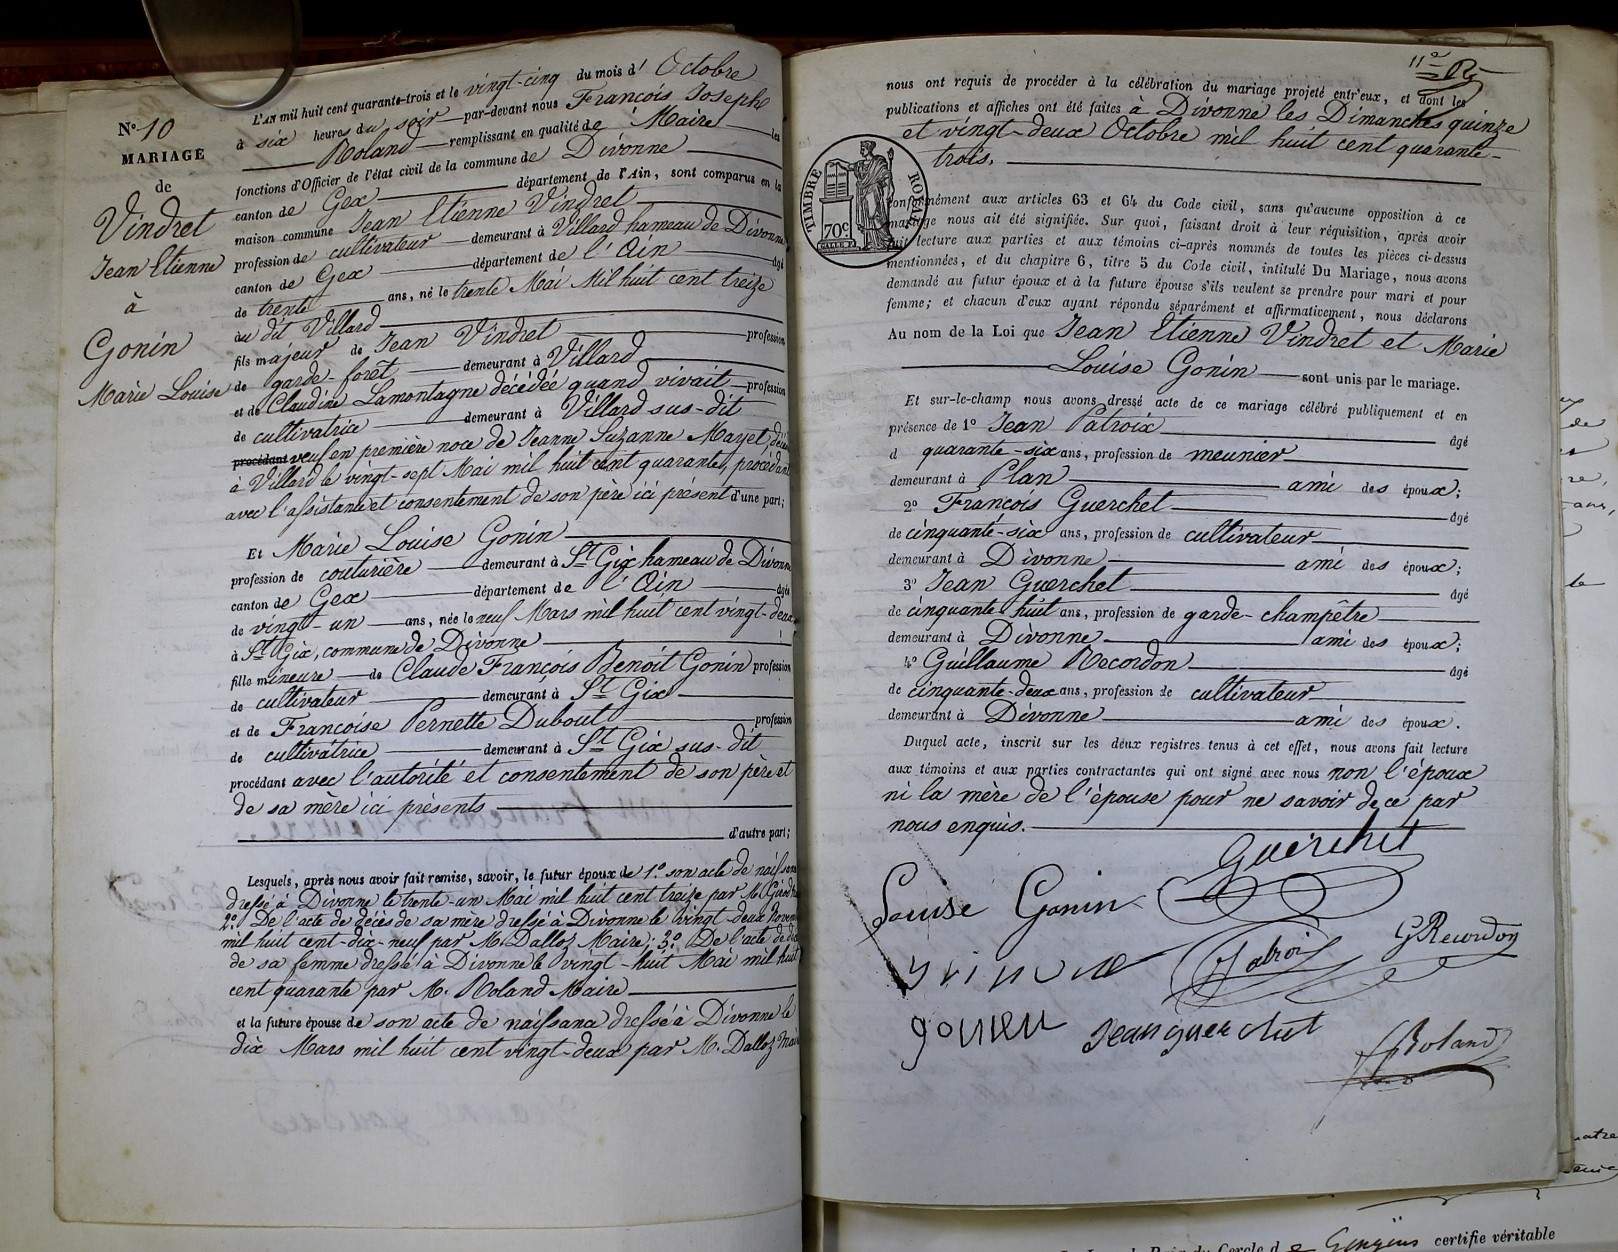 N° 10
MARIAGE
de
Vindret
Jean Etienne
à
Gonin
Marie Louise
L'AN mil huit cent quarante-trois et le vingt-cinq du mois d' Octobre
à six heures du soir par-devant nous François Joseph
Roland remplissant en qualité de Maire les
fonctions d'Officier de l'état civil de la commune de Divonne
canton de Gex département de l'Ain, sont comparus en la
maison commune Jean Etienne Vindret
profession de cultivateur demeurant à Villard hameau de Divonne
canton de Gex département de l'Ain âgé
de trente ans, né le trente Mai Mil huit cent treize
au dit Villard
fils majeur de Jean Vindret profession
de garde-forêt demeurant à Villard
et de Claudine Lamontagne décédée quand vivait profession
de cultivatrice demeurant à Villard sus-dit
procédant veuf en première noce de Jeanne Suzanne Mayet,
à Villard le vingt-sept Mai mil huit cent quarante, procédant
avec l'assistance et consentement de son père ici présent d'une part;
Et Marie Louise Gonin
profession de couturière demeurant à St Gix hameau de Divonne
canton de Gex département de l'Ain âgée
de vingt-un ans, née le neuf Mars mil huit cent vingt-deux
à St Gix, commune de Divonne
fille mineure de Claude François Benoit Gonin profession
de cultivateur demeurant à St Gix
et de Françoise Pernette Dubout profession
de cultivatrice demeurant à St Gix sus-dit
procédant avec l'autorité et consentement de son père et
de sa mère ici présents
d'autre part;
Lesquels, après nous avoir fait remise, savoir, le futur époux de 1° son acte de naissance
dressé à Divonne le trente-un Mai mil huit cent treize par M.
2° De l'acte de décès de sa mère dressé à Divonne le vingt-deux
mil huit cent-dix-neuf par M. Dalloz Maire; 3° De l'acte de
de sa femme dressé à Divonne le vingt-huit Mai mil huit
cent quarante par M. Roland Maire
et la future épouse de son acte de naissance dressé à Divonne le
dix Mars mil huit cent vingt-deux par M. Dalloz Maire
11e
nous ont requis de procéder à la célébration du mariage projeté entr'eux, et dont les
publications et affiches ont été faites à Divonne les Dimanches quinze
et vingt-deux Octobre mil huit cent quarante-
trois.
TIMBRE ROYAL
70c
conformément aux articles 63 et 64 du Code civil, sans qu'aucune opposition à ce
mariage nous ait été signifiée. Sur quoi, faisant droit à leur réquisition, après avoir
fait lecture aux parties et aux témoins ci-après nommés de toutes les pièces ci-dessus
mentionnées, et du chapitre 6, titre 5 du Code civil, intitulé Du Mariage, nous avons
demandé au futur époux et à la future épouse s'ils veulent se prendre pour mari et pour
femme; et chacun d'eux ayant répondu séparément et affirmativement, nous déclarons
Au nom de la Loi que Jean Etienne Vindret et Marie
Louise Gonin sont unis par le mariage.
Et sur-le-champ nous avons dressé acte de ce mariage célébré publiquement et en
présence de 1° Jean Patroix âgé
d quarante-six ans, profession de meunier
demeurant à Plan ami des époux;
2° François Guerchet âgé
de cinquante-six ans, profession de cultivateur
demeurant à Divonne ami des époux;
3° Jean Guerchet âgé
de cinquante huit ans, profession de garde-champêtre
demeurant à Divonne ami des époux;
4° Guillaume Recordon âgé
de cinquante-deux ans, profession de cultivateur
demeurant à Divonne ami des époux.
Duquel acte, inscrit sur les deux registres tenus à cet effet, nous avons fait lecture
aux témoins et aux parties contractantes qui ont signé avec nous non l'époux
ni la mère de l'épouse pour ne savoir de ce par
nous enquis.
Guerchet
Louise Gonin
Patroix
GRecordon
gonien
Jean guerchet
Roland
certifie véritable